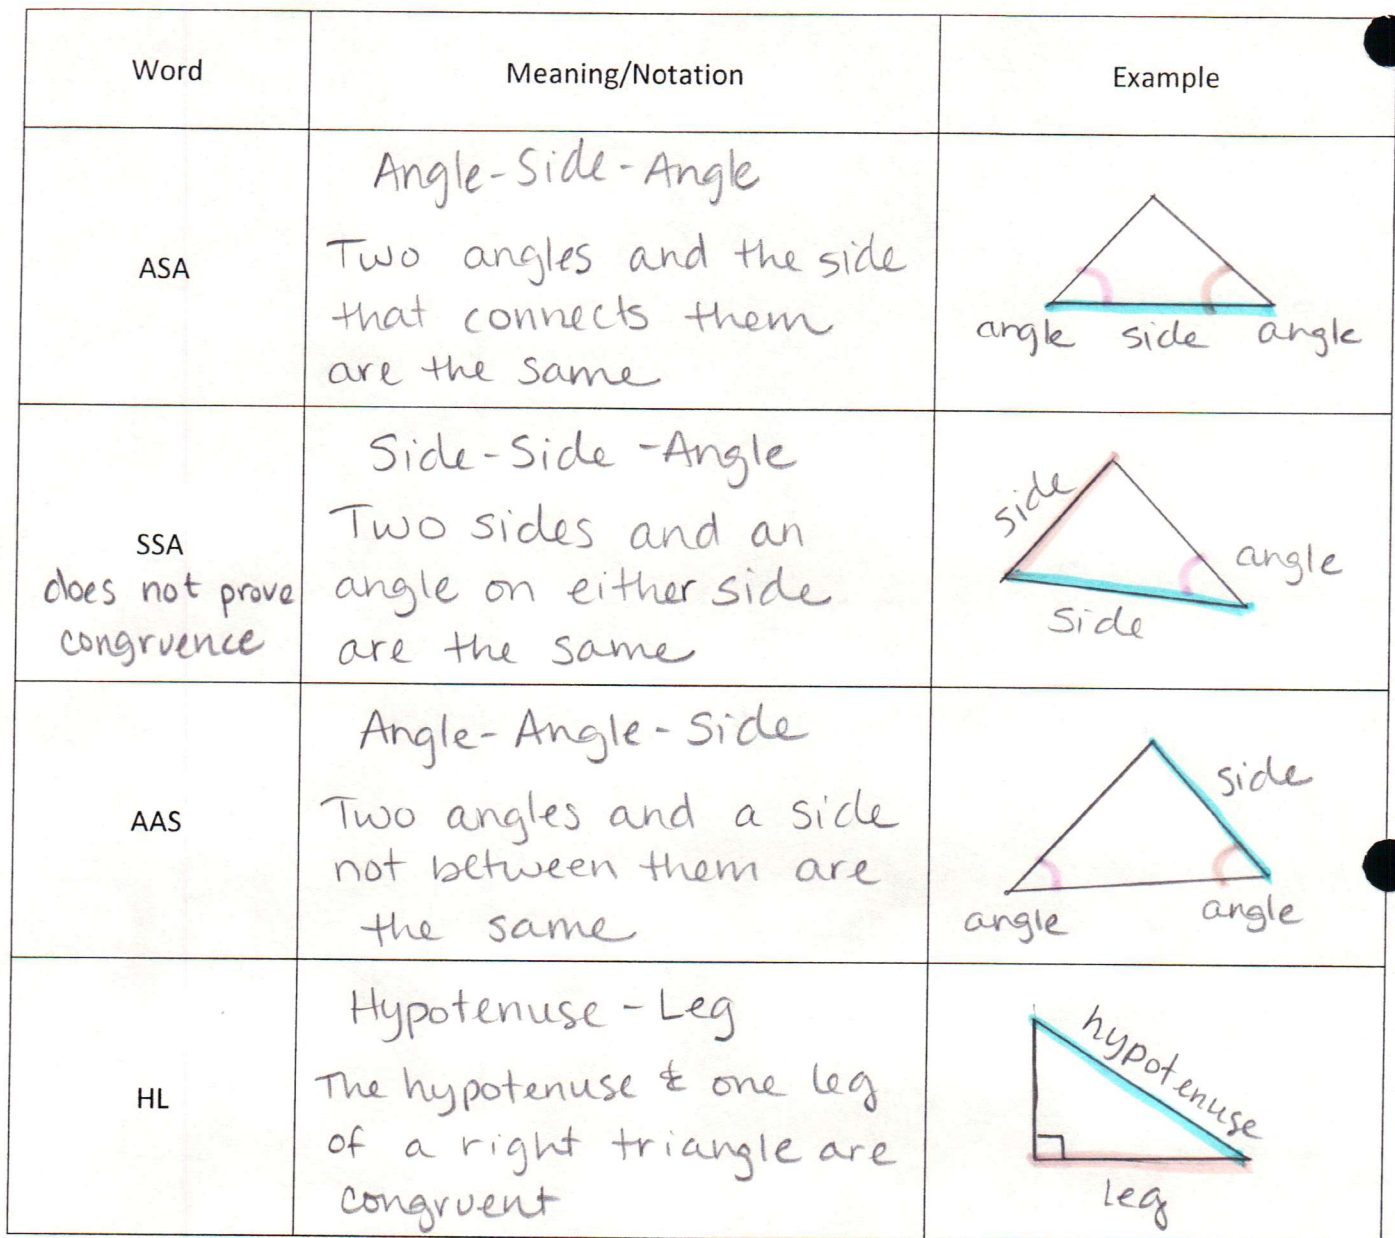 Word
Meaning/Notation
Example
ASA
Angle-Side-Angle
Two angles and the side
that connects them
are the same
angle side angle
SSA
does not prove
congruence
Side-Side-Angle
Two sides and an
angle on either side
are the same
side
angle
side
AAS
Angle-Angle-Side
Two angles and a side
not between them are
the same
side
angle
angle
HL
Hypotenuse-Leg
The hypotenuse & one leg
of a right triangle are
congruent
hypotenuse
leg